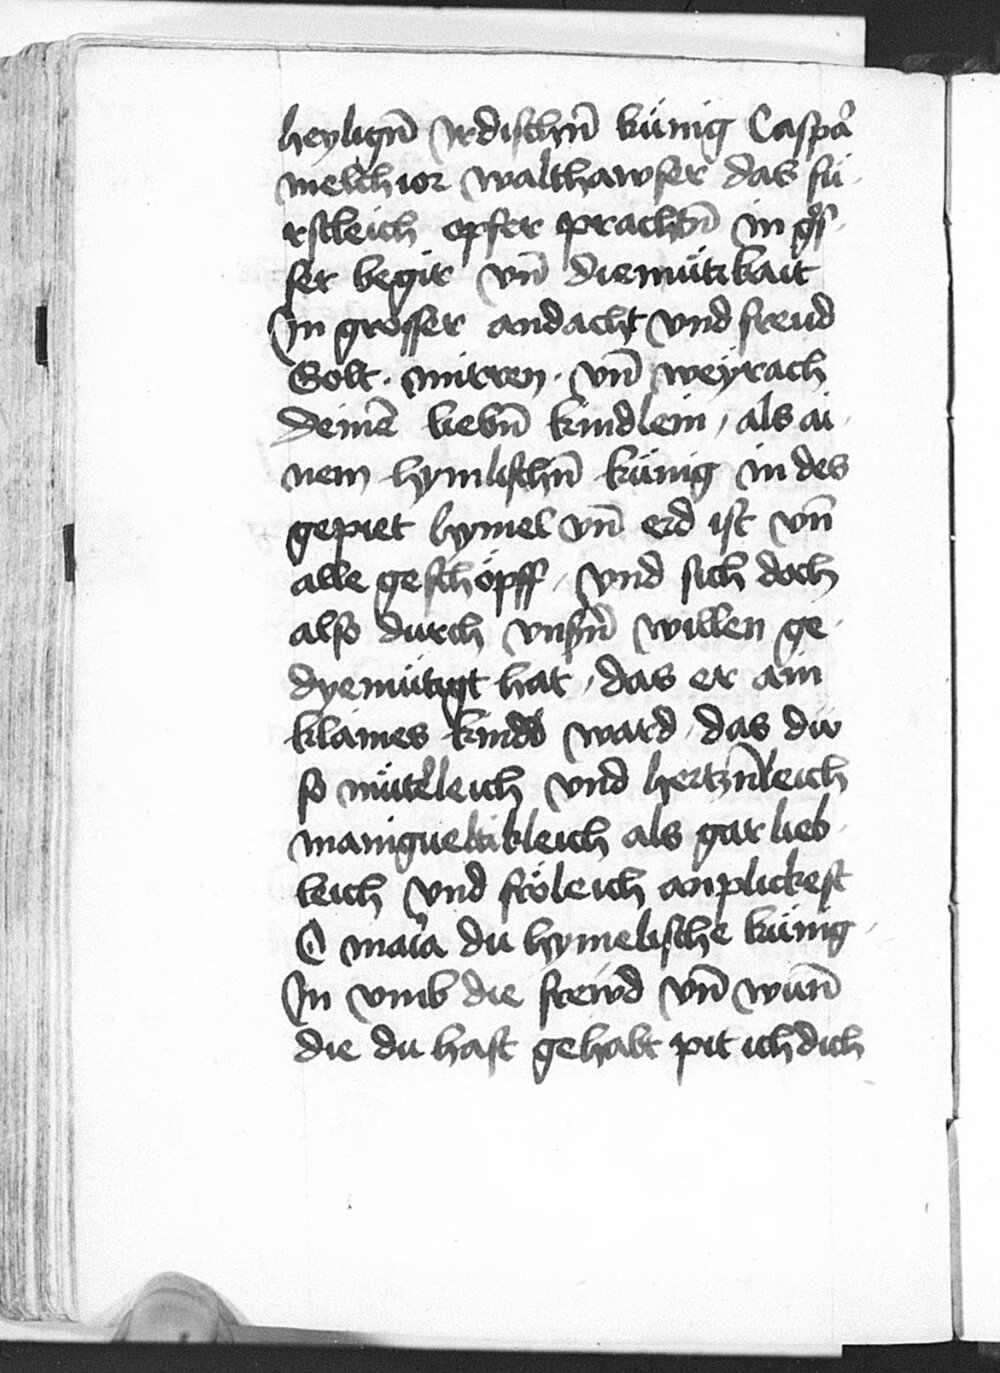 heyligñ Irdischñ künig Caspar
melchior walthawser das fü
rstleich opfer prachtñ in gros
ser begir vñ diemütikait
In grosser andacht vnd freud
Golt · mirren · vñ weyrach
deinẽ liebñ kindlein, als ai
nem hymlischñ künig in des
gepiet hymel vñ erd ist vñ
alle geschöpff, vnd sich doch
also durch vnsñ willen ge
dyemütigt hat, das er ain
klaines kindt ward, das du
so müterleich vnd hertzñleich
manigueltikleich als gar lieb
leich vnd fröleich anplickest
O maria du hymelische künig
In vmb die frewd vñ wunñ
die du hast gehabt pit ich dich